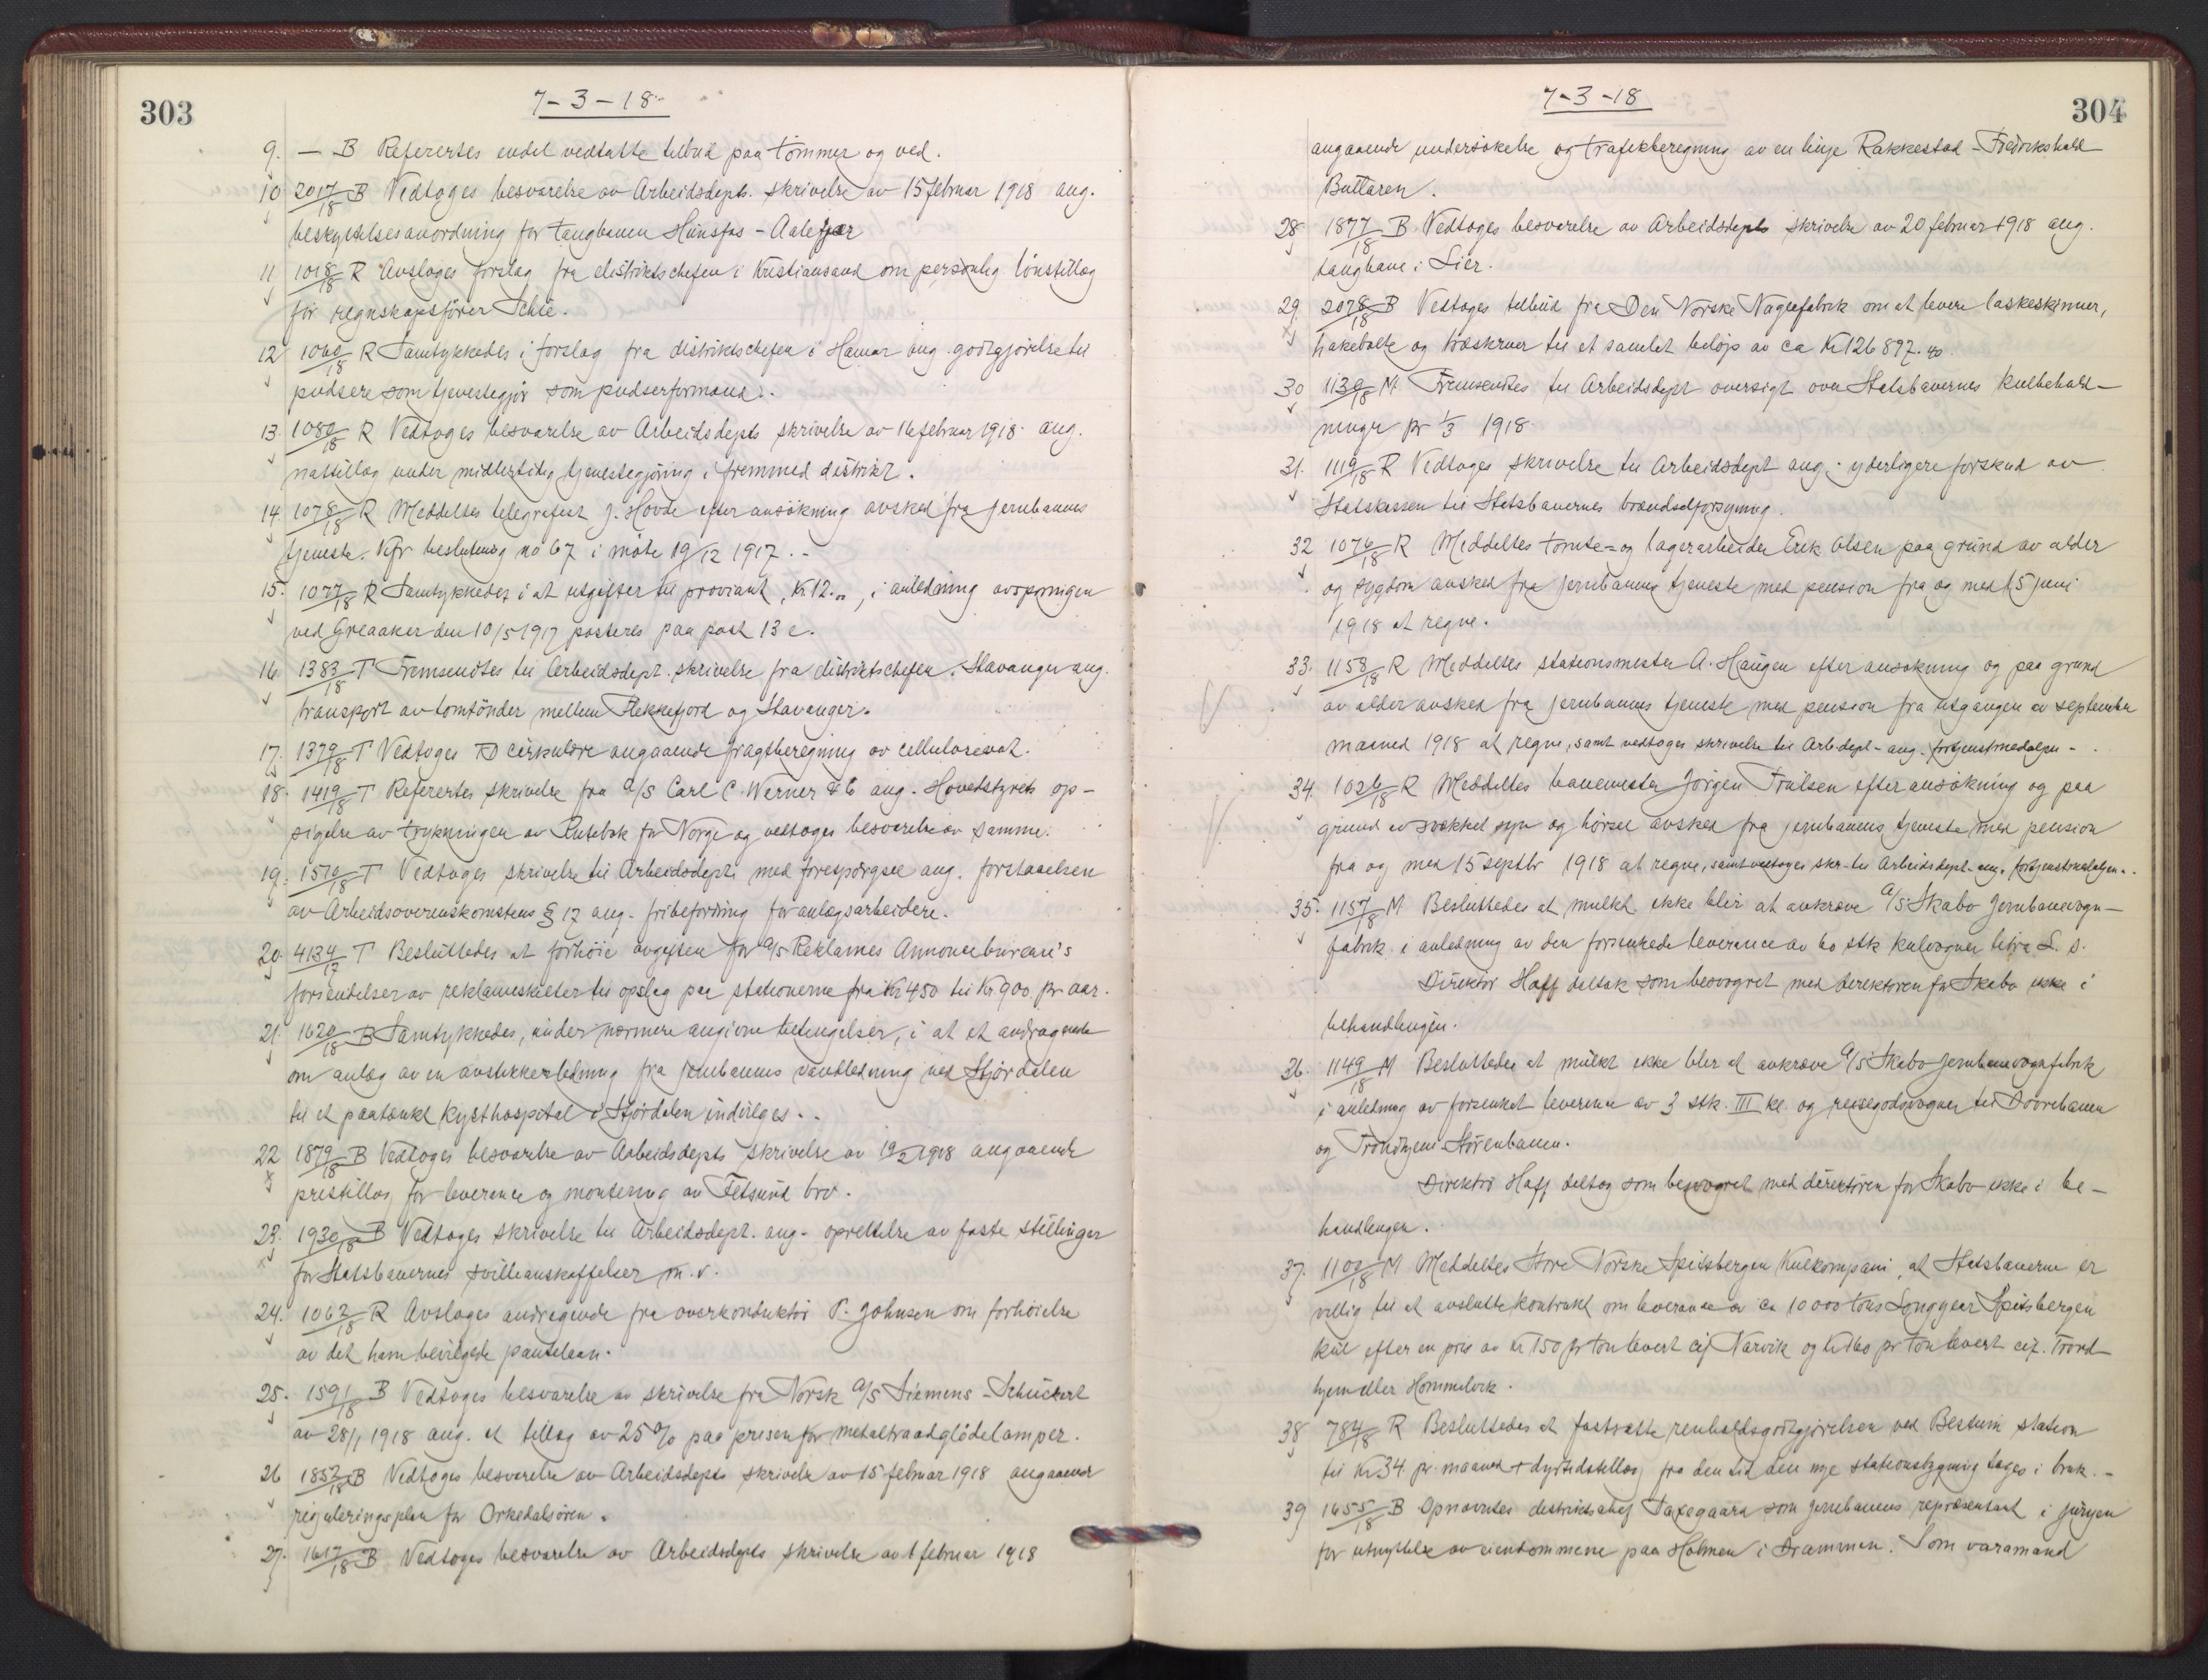 303
7-3-18
9. — B Refereres endel vedtatte tilbud paa tømmer og ved.
10 2017/18 B Vedtoges besvarelse av Arbeidsdepts. skrivelse av 15 februar 1918 ang.
beskyttelsesanordning for taugbanen Hunsfos - Aalefjær
11 1018/18 R Avsloges forslag fra distriktschefen i Kristiansand om personlig lønstillæg
for regnskapsfører Schie.
12 1060/18 R Samtykkedes i forslag fra distriktschefen i Hamar ang. godtgjørelse til
pudsere som tjenestegjør som pudserformænd.
13. 1080/18 R Vedtoges besvarelse av Arbeidsdepts skrivelse av 16 februar 1918 ang.
nattillæg under midlertidig tjenestegjøring i fremmed distrikt.
14. 1078/18 R Meddeltes telegrafist J. Hovde efter ansøkning avsked fra jernbanens
tjeneste. Kfr beslutning no 67 i møte 19/12 1917. -
15. 1077/18 R Samtykkedes i at utgifter til proviant, Kr. 12.00, i anledning avsporingen
ved Greaaker den 10/5 1917 posteres paa post 13 c.
16. 1383/18 T Fremsendtes til Arbeidsdept. skrivelse fra distriktschefen, Stavanger ang.
transport av tomtønder mellem Flekkefjord og Stavanger.
17. 1379/18 T Vedtoges TD cirkulære angaaende fragtberegning av cellulosevat.
18. 1419/18 T Referertes skrivelse fra A/S Carl C. Werner & Co ang. Hovedstyrets op-
sigelse av trykningen av Rutebok for Norge og vedtoges besvarelse av samme.
19. 1570/18 T Vedtoges skrivelse til Arbeidsdepts med forespørgsel ang. forstaaelsen
av Arbeidsoverenskomstens § 12 ang. fribefordring for anlægsarbeidere.
20. 4134/17 T Besluttedes at forhøie avgiften for A/S Reklames Annoncebureau's
forsendelser av reklameskilter til opslag paa stationerne fra Kr 450 til Kr 900 pr. aar.
21. 1620/18 B Samtykkedes, under nærmere angivne betingelser, i at et andragende
om anlæg av en avstikkerledning fra jernbanens vandledning ved Stjørdalen
til et paatænkt kysthospital i Stjørdalen indvilges. -
22 1879/18 B Vedtoges besvarelse av Arbeidsdepts skrivelse av 19/2 1918 angaaende
pristillæg for leverence og montering av Fetsund bro.
23. 1930/18 B Vedtoges skrivelse til Arbeidsdept. ang. oprettelse av faste stillinger
for Statsbanernes svilleanskaffelser m. v.
24. 1062/18 R Avsloges andragende fra overkonduktør P. Johnsen om forhøielse
av det ham bevilgede pantelaan.
25. 1591/18 B Vedtoges besvarelse av skrivelse fra Norsk A/S Siemens-Schuckert
av 28/1 1918 ang. et tillæg av 25 % paa prisen for metaltraadglødelamper.
26 1852/18 B Vedtoges besvarelse av Arbeidsdepts skrivelse av 15 februar 1918 angaaende
reguleringsplan for Orkedalsøren.
27. 1617/18 B Vedtoges besvarelse av Arbeidsdepts skrivelse av 1 februar 1918
304
7-3-18
angaaende undersøkelse og trafikberegning av en linje Rakkestad - Fredrikshald
Bullaren.
28 1877/18 B Vedtoges besvarelse av Arbeidsdepts skrivelse av 20 februar 1918 ang.
taugbane i Lier.
29 2078/18 B Vedtoges tilbud fra Den Norske Naglefabrik om at levere laskeskinner,
hakebolte og træskruer til et samlet beløp av ca Kr 126 897.40
30 1139/18 M Fremsendtes til Arbeidsdept oversigt over Statsbanernes kulbehold-
ninger pr 1/3 1918.
31. 1119/18 R Vedtoges skrivelse til Arbeidsdept ang. yderligere forskud av
Statskassen til Statsbanernes brændselforsyning.
32 1076/18 R Meddeltes tomte- og lagerarbeider Erik Olsen paa grund av alder
og sygdom avsked fra jernbanens tjeneste med pension fra og med 15 juni
1918 at regne.
33. 1158/18 R Meddeltes stationsmester A. Haugen efter ansøkning og paa grund
av alder avsked fra jernbanens tjeneste med pension fra utgangen av september
maaned 1918 at regne, samt vedtoges skrivelse til Arb.dept. ang. fortjenstmedaljen -
34. 1026/18 R Meddeltes banemester Jørgen Frilsen efter ansøkning og paa
grund av svækket syn og hørsel avsked fra jernbanens tjeneste med pension
fra og med 15 septbr 1918 at regne, samt vedtoges skr. til Arbeidsdept. ang. fortjenstmedaljen..
35. 1157/18 M Besluttedes at mulkt ikke blir at avkræve A/S Skabo Jernbanevogn-
fabrik i anledning av den forsinkede leverance av 60 stk kulvogner litra L. s.
Direktør Hoff deltok som besvogret med direktøren for Skabo ikke i
behandlingen.
36. 1149/18 M Besluttedes at mulkt ikke blir at avkræve A/S Skabo Jernbanevognfabrik
i anledning av forsinket leverance av 3 stk. III kl. og reisegodsvogner til Dovrebanen
og Trondhjem-Størenbanen.
Direktør Hoff deltog som besvogret med direktøren for Skabo ikke i be-
handlingen.
37. 1102/18 M Meddeltes Store Norske Spitsbergen Kulkompani, at Statsbanerne er
villig til at avslutte kontrakt om leverance av ca 10 000 tons Longyear Spitsbergen
kul efter en pris av Kr 150 pr ton levert cif Narvik og Kr 160 pr ton levert cif. Trond-
hjem eller Hommelvik.
38 784/18 R Besluttedes at fastsætte renholdsgodtgjørelsen ved Bestum station
til Kr 34 pr. maaned + dyrtidstillæg fra den tid den nye stationsbygning tages i bruk. -
39 1655/18 B Opnævntes distriktschef Saxegaard som jernbanens repræsentant i juryen
for utnyttelse av eiendommene paa Holmen i Drammen. Som varamand